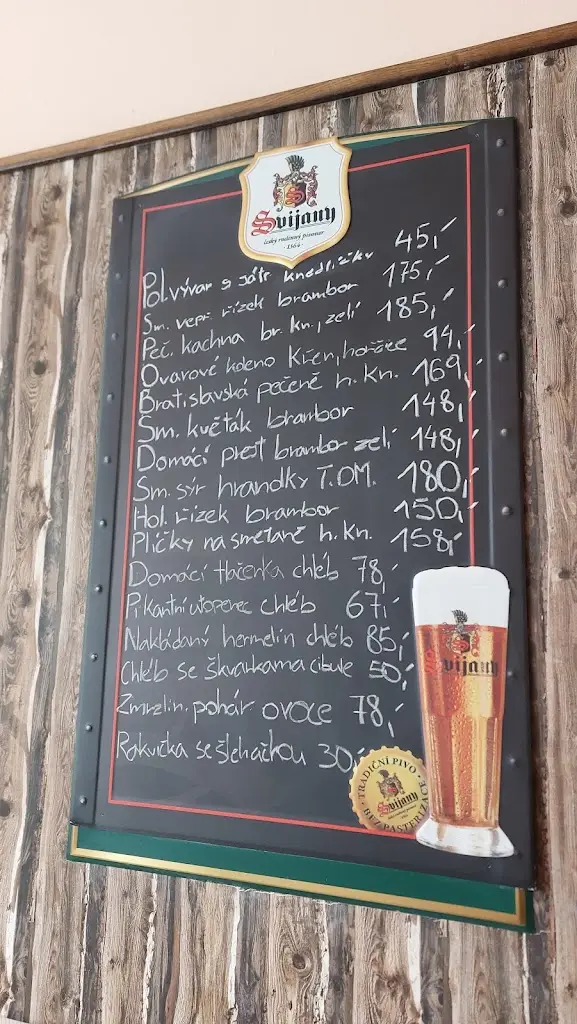 Svijany
český rodinný pivovar
· 1564 ·
Pol. vývar s játr knedlíčky 45,-
Sm. vepř. řízek brambor 175,-
Peč. kachna br. kn., zelí 185,-
Ovarové koleno křen, hořčice 94,-
Bratislavská pečeně h. kn. 169,-
Sm. květák brambor 148,-
Domácí prejt brambor zelí 148,-
Sm. sýr hranolky T.OM. 180,-
Hol. řízek brambor 150,-
Plíčky na smetaně h. kn. 158,-
Domácí tlačenka chléb 78,-
Pikantní utopenec chléb 67,-
Nakládaný hermelín chléb 85,-
Chléb se škvarkama cibule 50,-
Zmrzlin. pohár ovoce 78,-
Rakvička se šlehačkou 30,-
Svijany
TRADIČNÍ PIVO
Svijany
BEZ PASTERIZACE